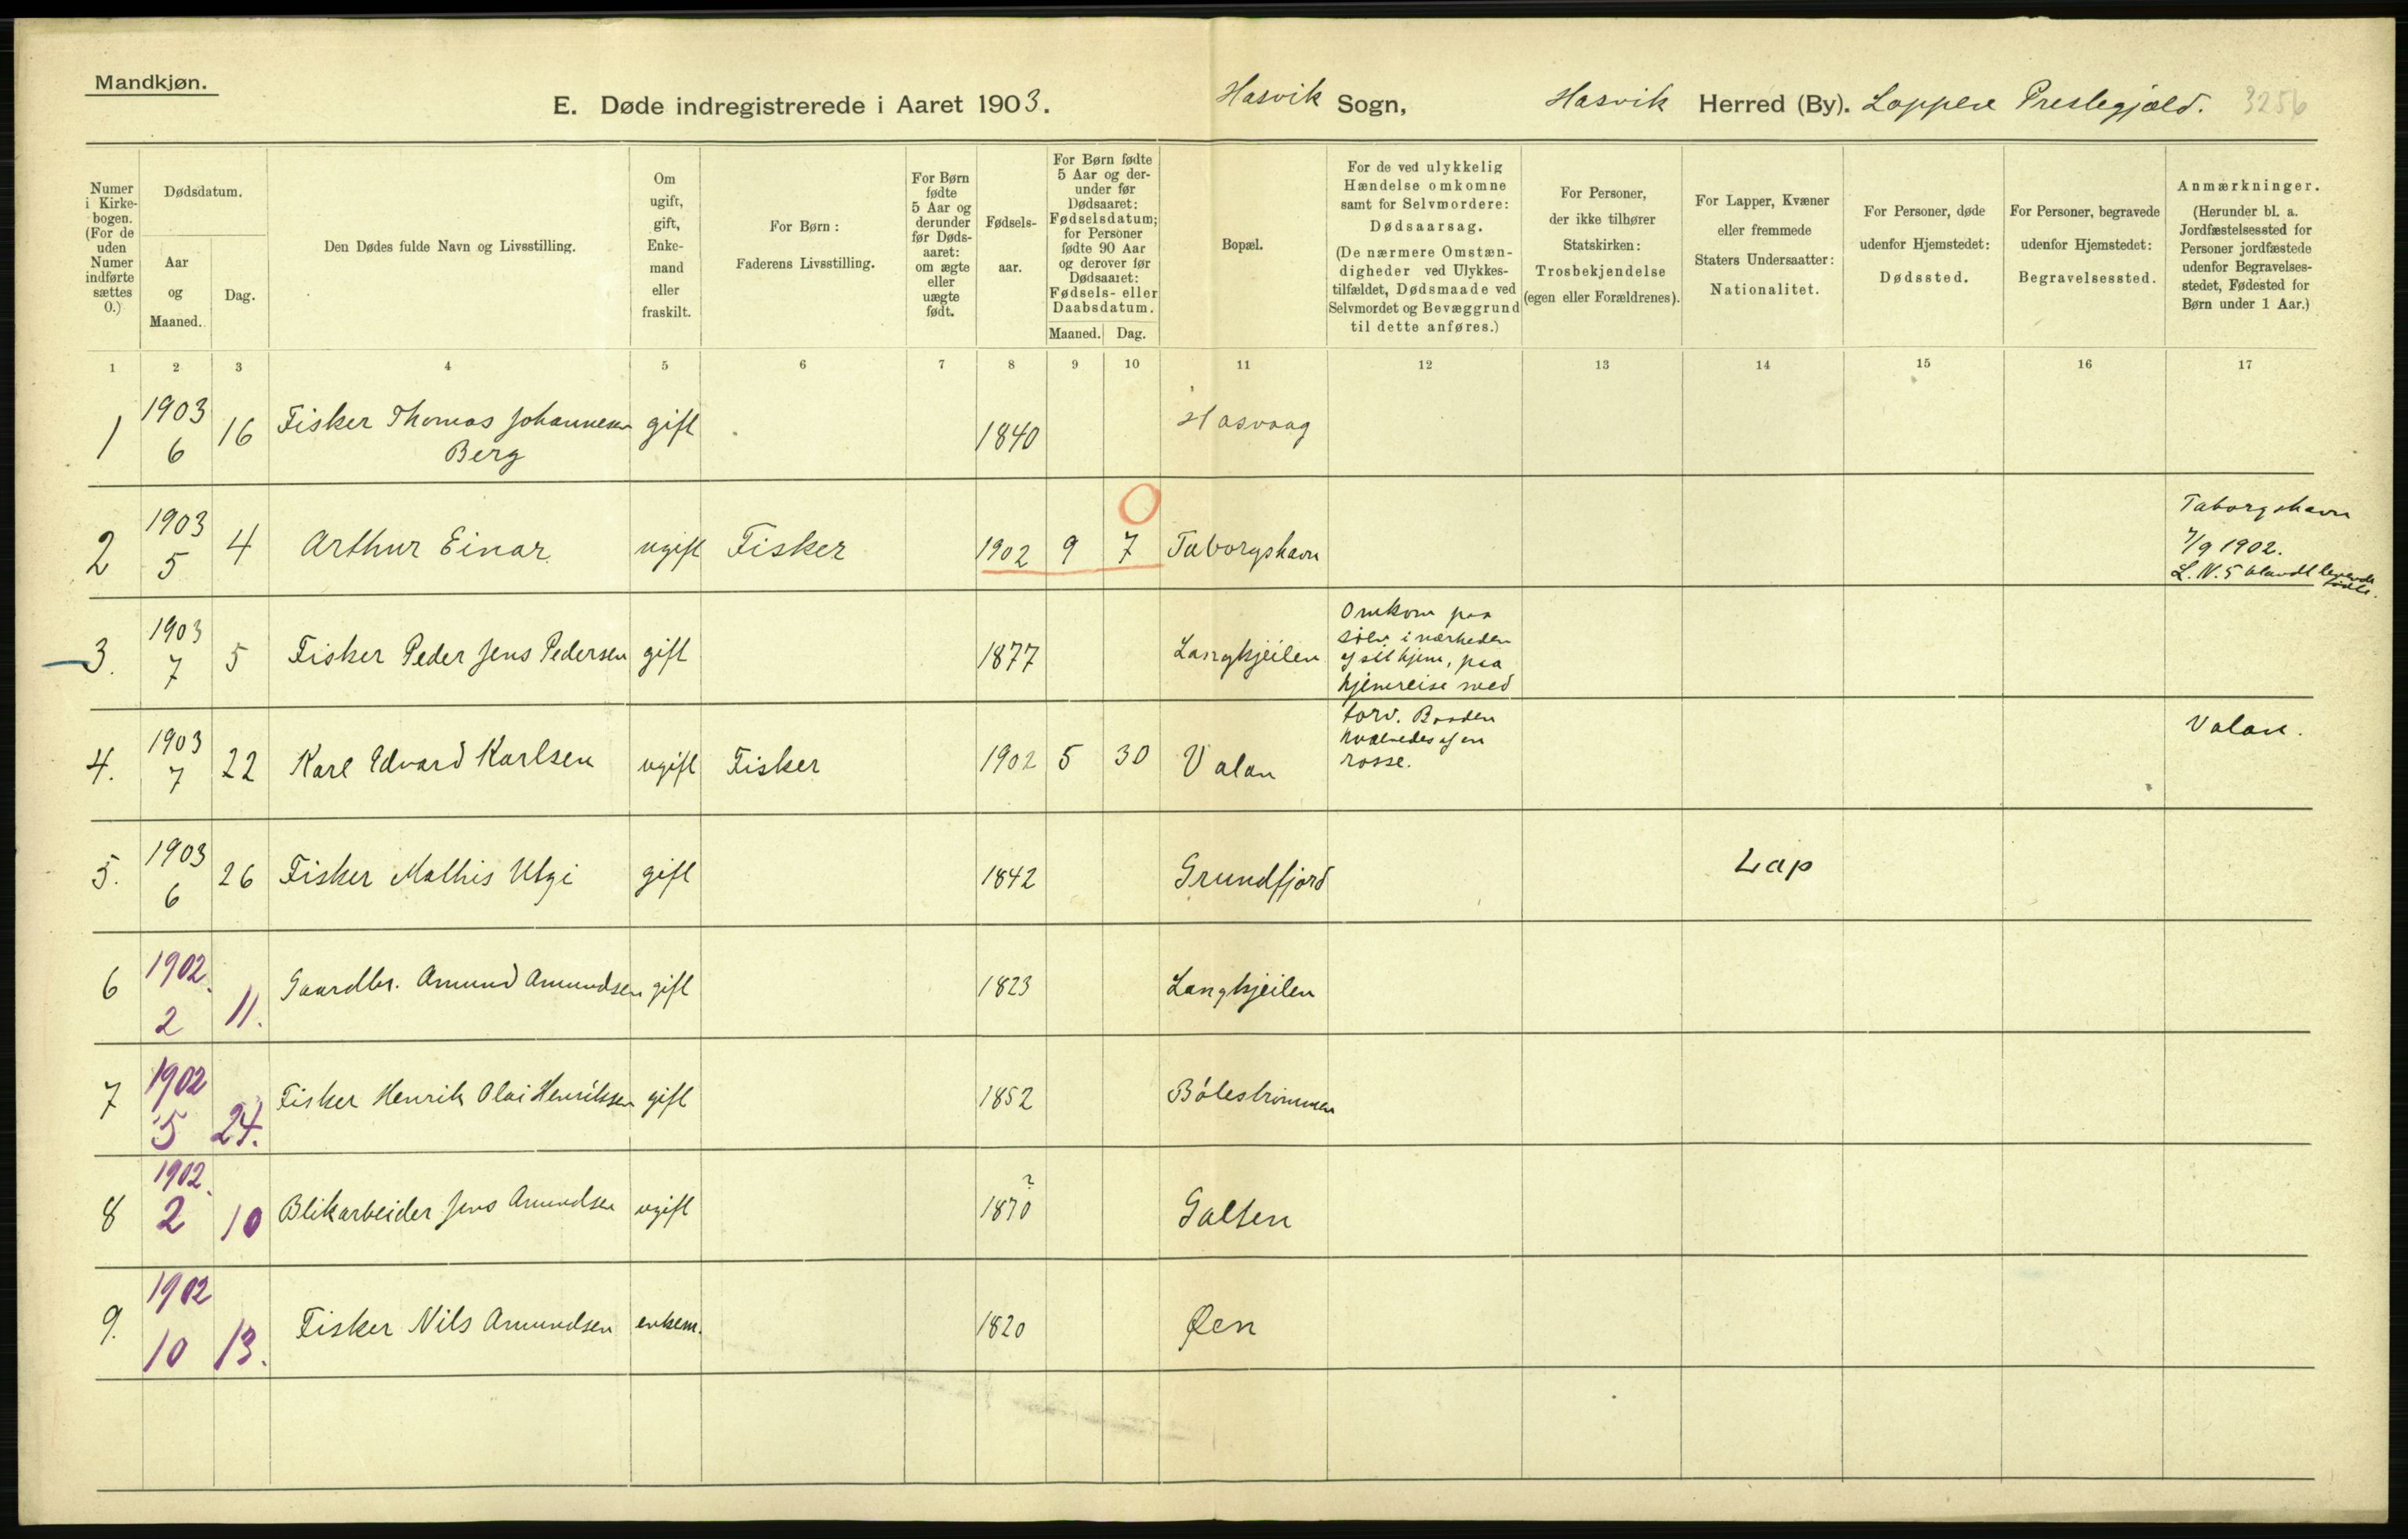 Mandkjøn.
E. Døde indregistrerede i Aaret 1903. Hasvik Sogn, Hasvik Herred (By). Loppen Prestegjæld. 3256
Numer i Kirkebogen. (For de uden Numer indførte sættes 0.)
Dødsdatum.
Aar og Maaned.
Dag.
Den Dødes fulde Navn og Livsstilling.
Om ugift, gift, Enkemand eller fraskilt.
For Børn: Faderens Livsstilling.
For Børn fødte 5 Aar og derunder før Dødsaaret: om ægte eller uægte født.
Fødselsaar.
For Børn fødte 5 Aar og derunder før Dødsaaret: Fødselsdatum; for Personer fødte 90 Aar og derover før Dødsaaret: Fødsels- eller Daabsdatum.
Maaned. Dag.
Bopæl.
For de ved ulykkelig Hændelse omkomne samt for Selvmordere: Dødsaarsag. (De nærmere Omstændigheder ved Ulykkestilfældet, Dødsmaade ved Selvmordet og Bevæggrund til dette anføres.)
For Personer, der ikke tilhører Statskirken: Trosbekjendelse (egen eller Forældrenes).
For Lapper, Kvæner eller fremmede Staters Undersaatter: Nationalitet.
For Personer, døde udenfor Hjemstedet: Dødssted.
For Personer, begravede udenfor Hjemstedet: Begravelsessted.
Anmærkninger. (Herunder bl. a. Jordfæstelsessted for Personer jordfæstede udenfor Begravelsesstedet, Fødested for Børn under 1 Aar.)
1 2 3 4 5 6 7 8 9 10 11 12 13 14 15 16 17
1 1903 6 16 Fisker Thomas Johannesen Berg gift 1840 Hasvaag
2 1903 5 4 Arthur Einar ugift Fisker 1902 9 7 0 Taborgshavn Taborgshavn 7/9 1902. L. N. 5 blandt levende fødte.
3. 1903 7 5 Fisker Peder Jens Pedersen gift 1877 Langkjeilen Omkom paa sjøen i nærheden af sit hjem, paa hjemreise med torv. Baaden hvælvedes af en rosse.
4. 1903 7 22 Karl Edvard Karlsen ugift Fisker 1902 5 30 Valan Valan.
5. 1903 6 26 Fisker Mathis Utzi gift 1842 Grundfjord Lap
6 1902. 2 11. Gaardbr. Amund Amundsen gift 1823 Langkjeilen
7 1902 5 24. Fisker Henrik Olai Henriksen gift 1852 Bølestrømmen
8 1902. 2 10 Blikarbeider Jens Amundsen ugift 1870 ? Galten
9. 1902 10 13. Fisker Nils Amundsen enkem. 1820 Øen